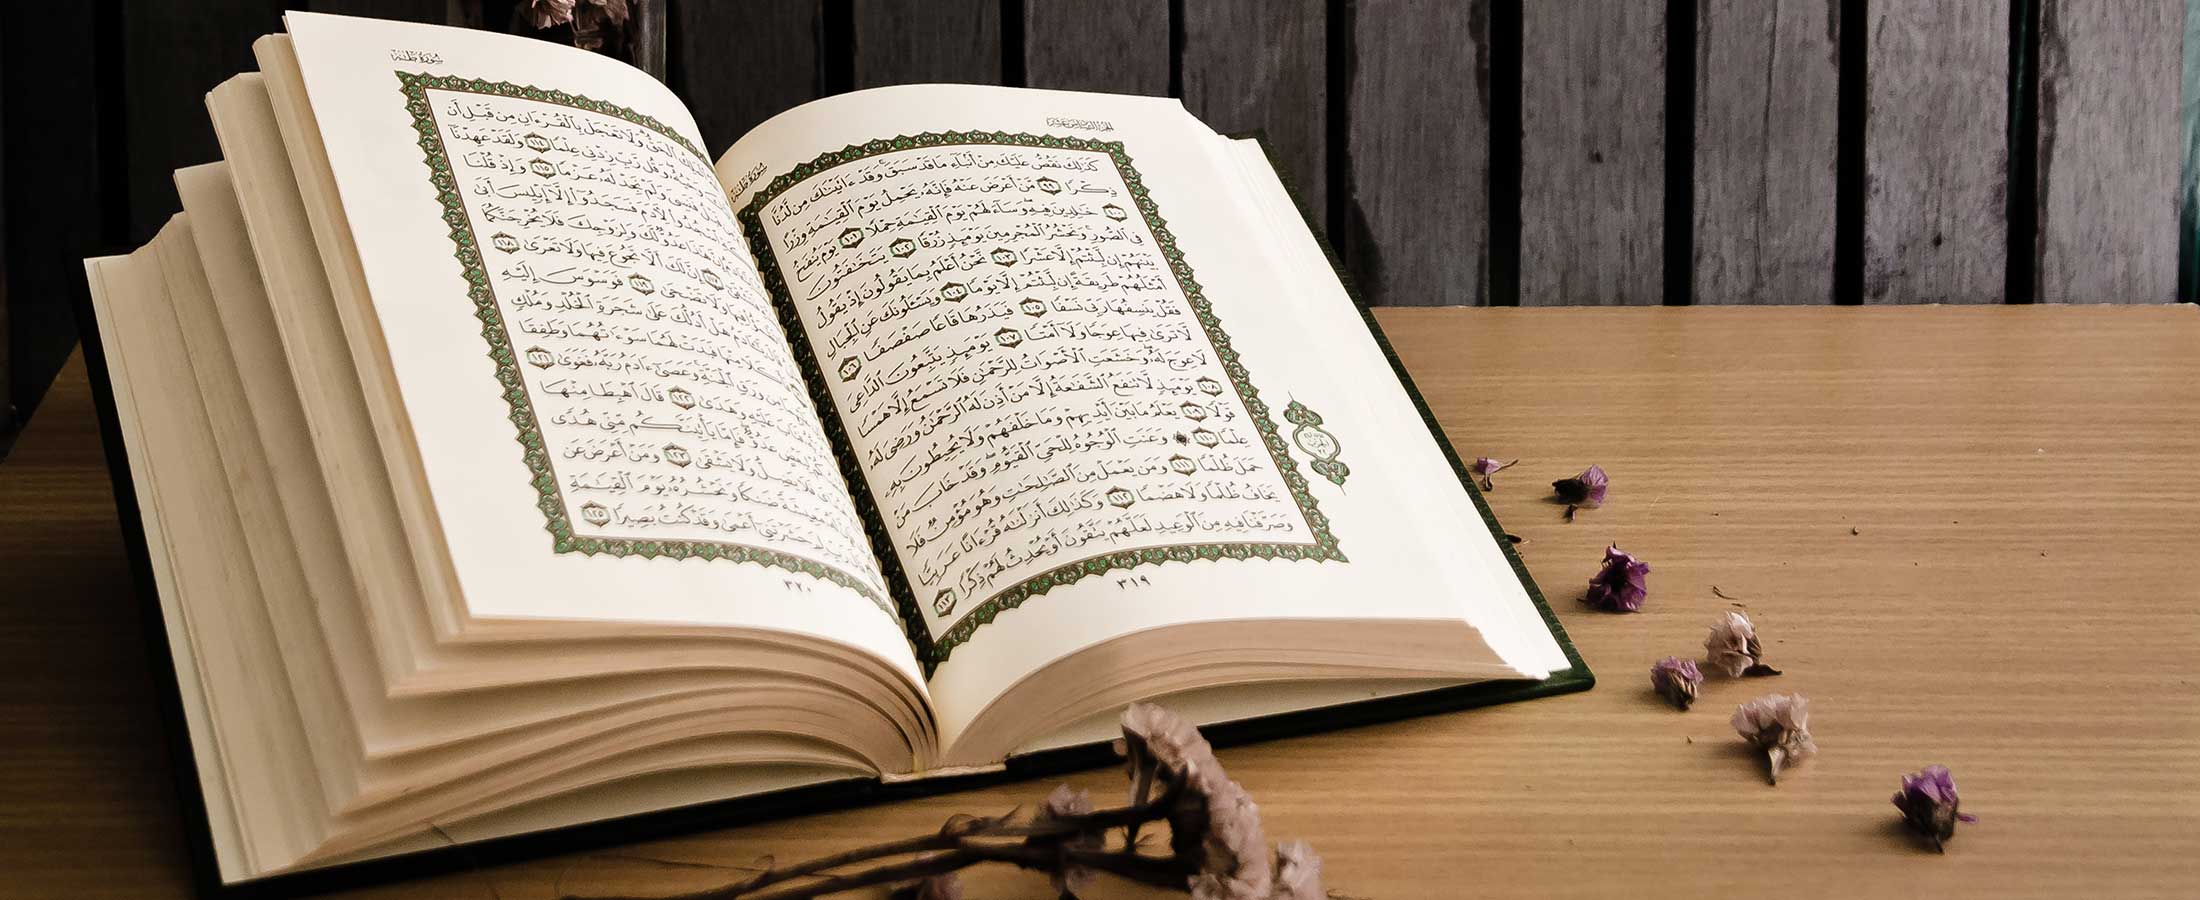 الجزء السادس عشر
سورة طه
كَذَٰلِكَ نَقُصُّ عَلَيْكَ مِنْ أَنۢبَآءِ مَا قَدْ سَبَقَ وَقَدْ ءَاتَيْنَٰكَ مِن لَّدُنَّا
ذِكْرًا ٩٩ مَّنْ أَعْرَضَ عَنْهُ فَإِنَّهُۥ يَحْمِلُ يَوْمَ ٱلْقِيَٰمَةِ وِزْرًا
١٠٠ خَٰلِدِينَ فِيهِ وَسَآءَ لَهُمْ يَوْمَ ٱلْقِيَٰمَةِ حِمْلًا ١٠١ يَوْمَ يُنفَخُ
فِى ٱلصُّورِ وَنَحْشُرُ ٱلْمُجْرِمِينَ يَوْمَئِذٍ زُرْقًا ١٠٢ يَتَخَٰفَتُونَ
بَيْنَهُمْ إِن لَّبِثْتُمْ إِلَّا عَشْرًا ١٠٣ نَّحْنُ أَعْلَمُ بِمَا يَقُولُونَ إِذْ يَقُولُ
أَمْثَلُهُمْ طَرِيقَةً إِن لَّبِثْتُمْ إِلَّا يَوْمًا ١٠٤ وَيَسْـَٔلُونَكَ عَنِ ٱلْجِبَالِ
فَقُلْ يَنسِفُهَا رَبِّى نَسْفًا ١٠٥ فَيَذَرُهَا قَاعًا صَفْصَفًا ١٠٦
لَّا تَرَىٰ فِيهَا عِوَجًا وَلَآ أَمْتًا ١٠٧ يَوْمَئِذٍ يَتَّبِعُونَ ٱلدَّاعِىَ
لَا عِوَجَ لَهُۥ وَخَشَعَتِ ٱلْأَصْوَاتُ لِلرَّحْمَٰنِ فَلَا تَسْمَعُ إِلَّا هَمْسًا
١٠٨ يَوْمَئِذٍ لَّا تَنفَعُ ٱلشَّفَٰعَةُ إِلَّا مَنْ أَذِنَ لَهُ ٱلرَّحْمَٰنُ وَرَضِىَ لَهُۥ
قَوْلًا ١٠٩ يَعْلَمُ مَا بَيْنَ أَيْدِيهِمْ وَمَا خَلْفَهُمْ وَلَا يُحِيطُونَ بِهِۦ
عِلْمًا ١١٠ ۞ وَعَنَتِ ٱلْوُجُوهُ لِلْحَىِّ ٱلْقَيُّومِ وَقَدْ خَابَ مَنْ
حَمَلَ ظُلْمًا ١١١ وَمَن يَعْمَلْ مِنَ ٱلصَّٰلِحَٰتِ وَهُوَ مُؤْمِنٌ فَلَا
يَخَافُ ظُلْمًا وَلَا هَضْمًا ١١٢ وَكَذَٰلِكَ أَنزَلْنَٰهُ قُرْءَانًا عَرَبِيًّا
وَصَرَّفْنَا فِيهِ مِنَ ٱلْوَعِيدِ لَعَلَّهُمْ يَتَّقُونَ أَوْ يُحْدِثُ لَهُمْ ذِكْرًا ١١٣
٣١٩
سورة طه
ٱلْحَقُّ وَلَا تَعْجَلْ بِٱلْقُرْءَانِ مِن قَبْلِ أَن
وَقُل رَّبِّ زِدْنِى عِلْمًا ١١٤ وَلَقَدْ عَهِدْنَآ
فَنَسِىَ وَلَمْ نَجِدْ لَهُۥ عَزْمًا ١١٥ وَإِذْ قُلْنَا
ٱسْجُدُوا۟ لِءَادَمَ فَسَجَدُوٓا۟ إِلَّآ إِبْلِيسَ أَبَىٰ
عَدُوٌّ لَّكَ وَلِزَوْجِكَ فَلَا يُخْرِجَنَّكُمَا
إِنَّ لَكَ أَلَّا تَجُوعَ فِيهَا وَلَا تَعْرَىٰ ١١٨
وَلَا تَضْحَىٰ ١١٩ فَوَسْوَسَ إِلَيْهِ
هَلْ أَدُلُّكَ عَلَىٰ شَجَرَةِ ٱلْخُلْدِ وَمُلْكٍ
فَبَدَتْ لَهُمَا سَوْءَٰتُهُمَا وَطَفِقَا
مِن وَرَقِ ٱلْجَنَّةِ وَعَصَىٰٓ ءَادَمُ رَبَّهُۥ فَغَوَىٰ ١٢١
عَلَيْهِ وَهَدَىٰ ١٢٢ قَالَ ٱهْبِطَا مِنْهَا
عَدُوٌّ فَإِمَّا يَأْتِيَنَّكُم مِّنِّى هُدًى
يَضِلُّ وَلَا يَشْقَىٰ ١٢٣ وَمَنْ أَعْرَضَ عَن
مَعِيشَةً ضَنكًا وَنَحْشُرُهُۥ يَوْمَ ٱلْقِيَٰمَةِ
حَشَرْتَنِىٓ أَعْمَىٰ وَقَدْ كُنتُ بَصِيرًا ١٢٥
٣٢٠